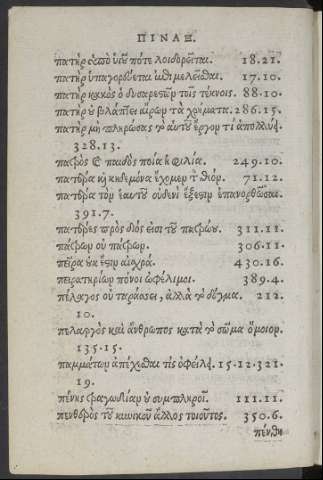 ΠΙΝΑΞ.
πατὴρ ὑπὸ υἱοῦ πότε λοιδορεῖται. 18.21.
πατὴρ ὑπαγορεύεται μελεῖσθαι. 17.10.
πατὴρ κακὸς ὁ δυσαρεστῶν τοῖς τέκνοις. 88.10.
πατὴρ οὐ βλάπτει αἴρων τὰ χρήματα. 286.15.
πατὴρ μὴ πληρώσας τὸ αὐτοῦ ἔργον τί ἀπολλύει.
328.13.
πατρὸς καὶ παιδὸς ποία φιλία. 249.10.
πατέρα κὴ κηδεμόνα ἔχομεν τὸν θεόν. 71.12.
πατέρα τὸν ἑαυτοῦ οὐδενὶ ἔξεστιν ἐπανορθῶσαι.
391.7.
πατέρες πρὸς διός εἰσι τοῦ 311.11.
οὐ 306.11.
πεῖρα οὐκ ἔστιν αἰσχρά. 430.16.
πειρατηρίων πόνοι ὠφέλιμοι. 389.4.
πέλαγος οὐ ταράσσει, ἀλλὰ τὸ δόγμα. 212.
10.
πελαργὸς καὶ ἄνθρωπος κατὰ τὸ σῶμα ὅμοιον.
135.15.
παμμάτων ἀπέχεσθαι τίς ὀφείλει. 15.12.321.
19.
πένης τραγῳδίαν οὐ συμπληροῖ. 111.11.
πενθερὸς τοῦ κυνικοῦ ἄλλος τοιοῦτος. 350.6.
πένθη